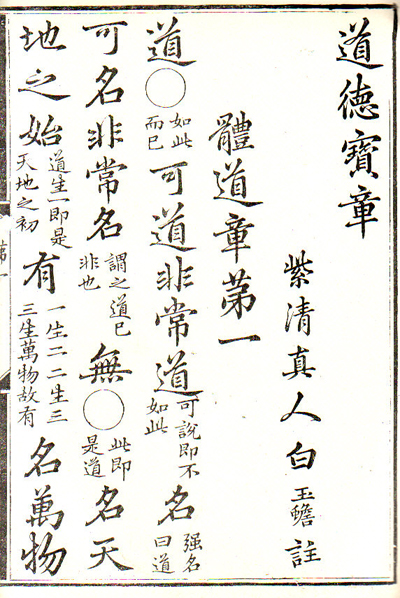 道德寶章
紫清真人白玉蟾註
體道章苐一
道〇如此而已可道非常道可說即不如此名强名曰道
可名非常名謂之道已非也無〇此即是道名天
地之始道生一即是天地之初有一生二二生三三生萬物故有名萬物